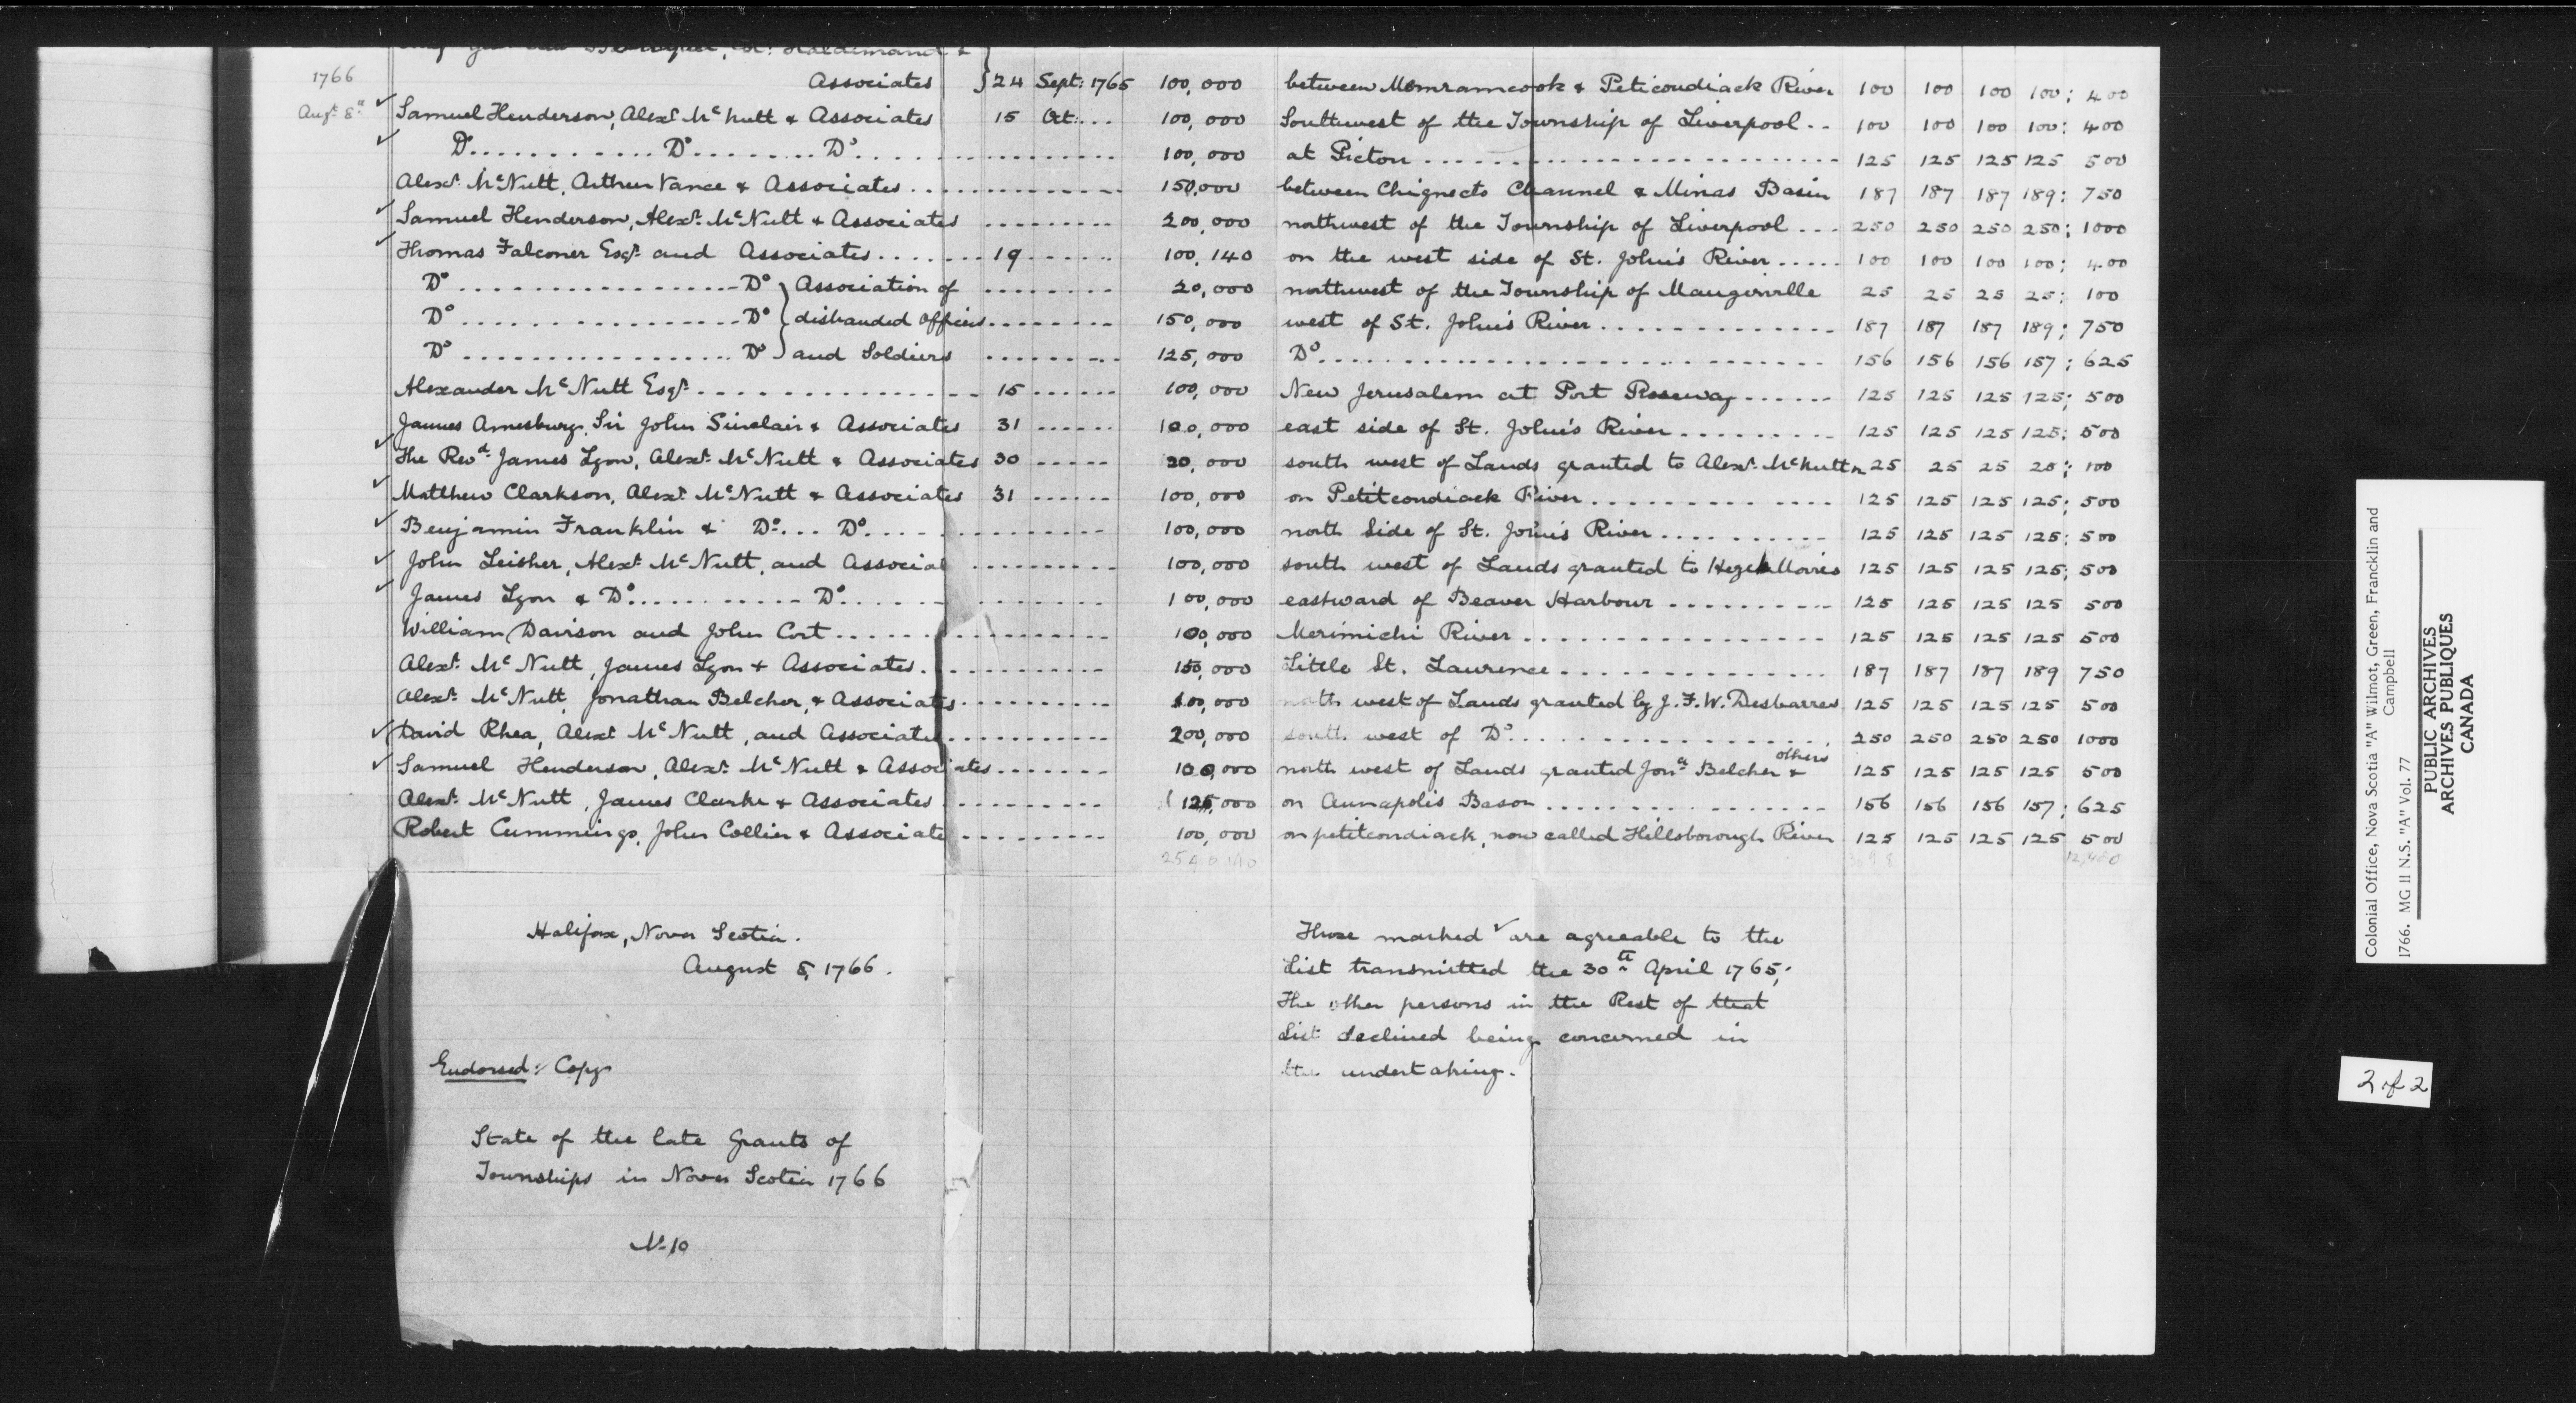 Associates } 24 Sept: 1765 100,000 between Memramcook & Peticoudiack River 100 100 100 100; 400
1766
Augt 8th
✓ Samuel Henderson, Alexr McNutt & Associates 15 Oct:... 100,000 Southwest of the Township of Liverpool.. 100 100 100 100: 400
✓ Do............Do........Do.... 100,000 at Picton........ 125 125 125 125 500
Alexr McNutt, Arthur Vance & Associates.... 150,000 between Chignecto Channel & Minas Basin 187 187 187 189: 750
✓ Samuel Henderson, Alexr McNutt & Associates .... 200,000 northwest of the Township of Liverpool... 250 250 250 250; 1000
✓ Thomas Falconer Esqr and Associates....... 19 ...... 100,140 on the west side of St. John's River..... 100 100 100 100; 400
Do..................Do } Association of ........ 20,000 northwest of the Township of Maugerville 25 25 25 25; 100
Do..................Do } disbanded Officers........ 150,000 west of St. John's River............. 187 187 187 189; 750
Do..................Do } and Soldiers ........ 125,000 Do............ 156 156 156 157; 625
Alexander McNutt Esqr............... 15 ...... 100,000 New Jerusalem at Port Roseway...... 125 125 125 125; 500
James Amesbury, Sir John Sinclair & Associates 31 ...... 100,000 east side of St. John's River......... 125 125 125 125; 500
✓ The Revd James Lyon, Alexr McNutt & Associates 30 ..... 20,000 south west of Lands granted to Alexr McNutt 25 25 25 25; 100
✓ Matthew Clarkson, Alexr McNutt & Associates 31 ...... 100,000 on Petitcoudiack River............. 125 125 125 125; 500
✓ Benjamin Franklin & Do... Do.............. 100,000 north Side of St. John's River.......... 125 125 125 125; 500
✓ John Leisher, Alexr McNutt, and Associat .......... 100,000 south west of Lands granted to Hezeh Morris 125 125 125 125; 500
✓ James Lyon & Do...........Do...... 100,000 eastward of Beaver Harbour......... 125 125 125 125 500
William Davison and John Cort............... 100,000 Merimichi River................ 125 125 125 125 500
Alexr McNutt, James Lyon & Associates........... 150,000 Little St. Laurence.............. 187 187 187 189 750
Alexr McNutt, Jonathan Belcher, & Associates.......... 100,000 north west of Lands granted by J.F.W. Desbarres 125 125 125 125 500
✓ David Rhea, Alexr McNutt, and Associates.......... 200,000 south west of Do................ 250 250 250 250 1000
✓ Samuel Henderson, Alexr McNutt & Associates....... 100,000 north west of Lands granted Jonn Belcher & others 125 125 125 125 500
Alexr McNutt, James Clarke & Associates .......... 125,000 on Annapolis Bason............... 156 156 156 157; 625
Robert Cummings, John Collier & Associate ......... 100,000 on petitcondiack, now called Hillsborough River 125 125 125 125 500
Halifax, Nova Scotia.
August 8, 1766.
Those marked ✓ are agreeable to the
List transmitted the 30th April 1765;
The other persons in the Rest of that
List declined being concerned in
the undertaking.
Endorsed: Copy
State of the late Grants of
Townships in Nova Scotia 1766
No 10
Colonial Office, Nova Scotia "A" Wilmot, Green, Francklin and
Campbell
1766. MG 11 N.S. "A" Vol. 77
PUBLIC ARCHIVES
ARCHIVES PUBLIQUES
CANADA
2 of 2